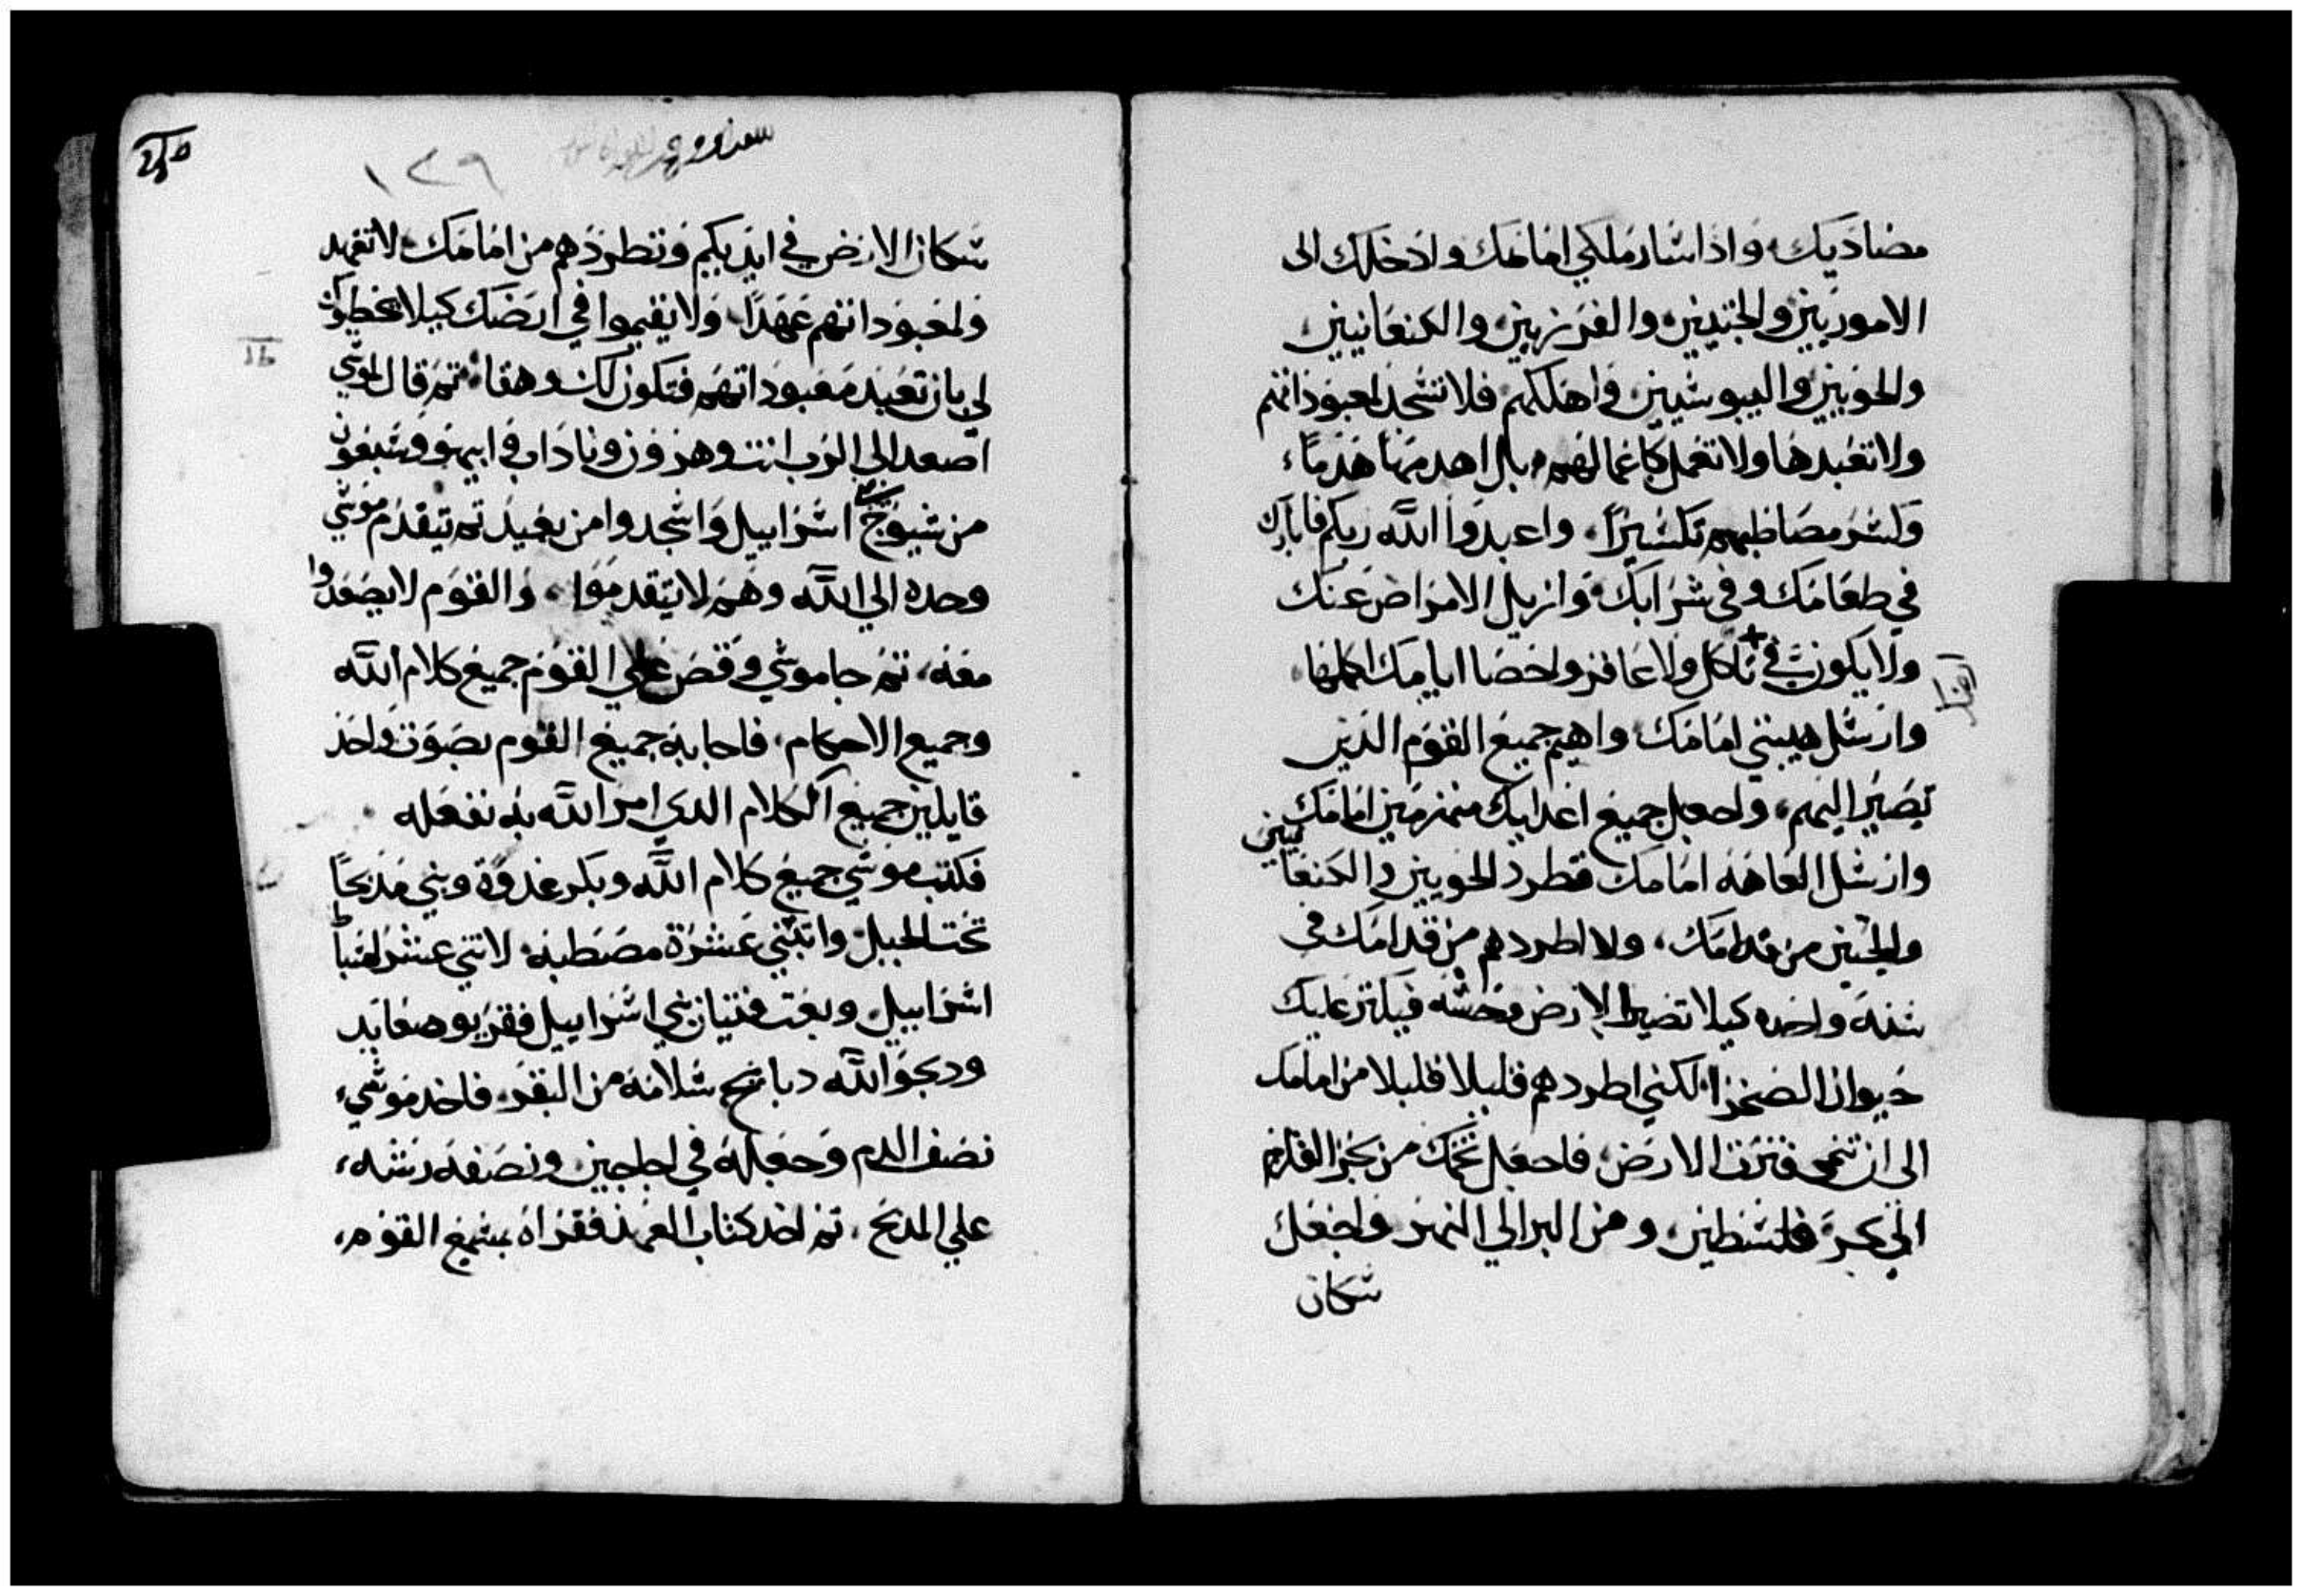 مضاديك، واذا سار ملكي امامك وادخلك الى
الاموريين والحتيين والفرزيين والكنعانيين
والحويين واليبوسيين واهلكهم فلا تسجد لمعبوداتهم
ولا تعبدها ولا تعمل كاعمالهم، بل اهدمها هدماً،
وكسر مصاطبهم تكسيراً، واعبدوا الله ربكم فابارك
في طعامك وفي شرابك، وازيل الامراض عنك
ولا يكون في تاكل ولا عاقر واحصا ايامك اكملها،
وارسل هيبتي امامك واهيم جميع القوم الذين
تصير اليهم، واجعل جميع اعدايك منهزمين امامك
وارسل العاهه امامك فتطرد الحويين والكنعانيين
والحتين من قدامك، ولا اطردهم من قدامك في
سنة واحده كيلا تصير الارض وحشه فيكثر عليك
حيوان الصحرا، لكني اطردهم قليلا قليلا من امامك
الى ان تنمى فترث الارض، فاجعل تخمك من بحر القلزم
الي بحر فلسطين، ومن البر الي النهر واجعل
سكان
١٣٩
سكان الارض في ايديكم وتطردهم من امامك، لا تعهد
ولمعبوداتهم عهداً، ولا يقيموا في ارضك كيلا يخطيوك
لي بان تعبد معبوداتهم فتكون لك وهقا، ثم قال لموسي
اصعد الي الرب انت وهرون وناداب وابيهو وسبعون
من شيوخ اسراييل واسجدوا من بعيد ثم يتقدم موسي
وحده الي الله وهم لا يتقدموا، والقوم لا يصعدوا
معه، ثم جا موسي وقص علي القوم جميع كلام الله
وجميع الاحكام، فاجابه جميع القوم بصوت واحد
قايلين جميع الكلام الدي امر الله به نفعله
فكتب موسي جميع كلام الله وبكر غدوة وبني مذبحاً
تحت الجبل واثنتي عشرة مصطبه لاثني عشر سبطاً
اسراييل، وبعث فتيان بني اسراييل فقربو صعايد
ودبحو الله دبايح سلامة من البقر، فاخد موسي،
نصف الدم وجعله في اجاجين ونصفه رشه،
علي المدبح، ثم اخد كتاب العهد فقراه بسمع القوم،